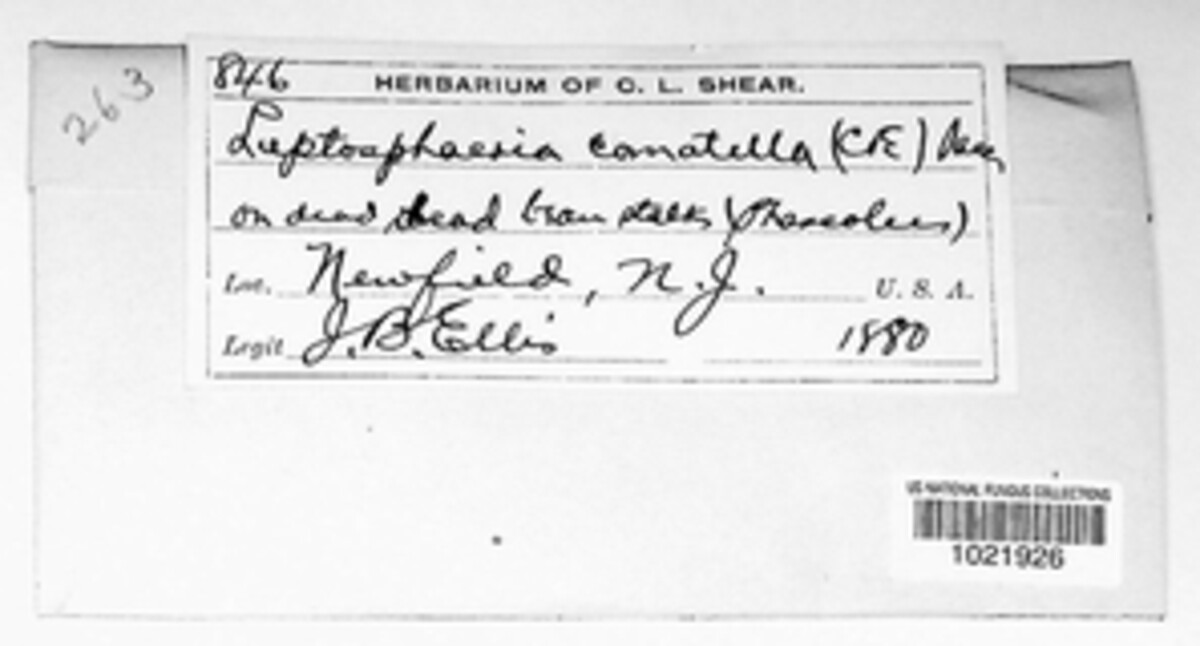 263
846
HERBARIUM OF C. L. SHEAR.
Leptosphaeria comatella (C&E) Sacc
on dead dead bean stalks (Phaseolus)
Loc. Newfield, N.J. U. S. A.
Legit J.B. Ellis 1880
US NATIONAL FUNGUS COLLECTIONS
1021926